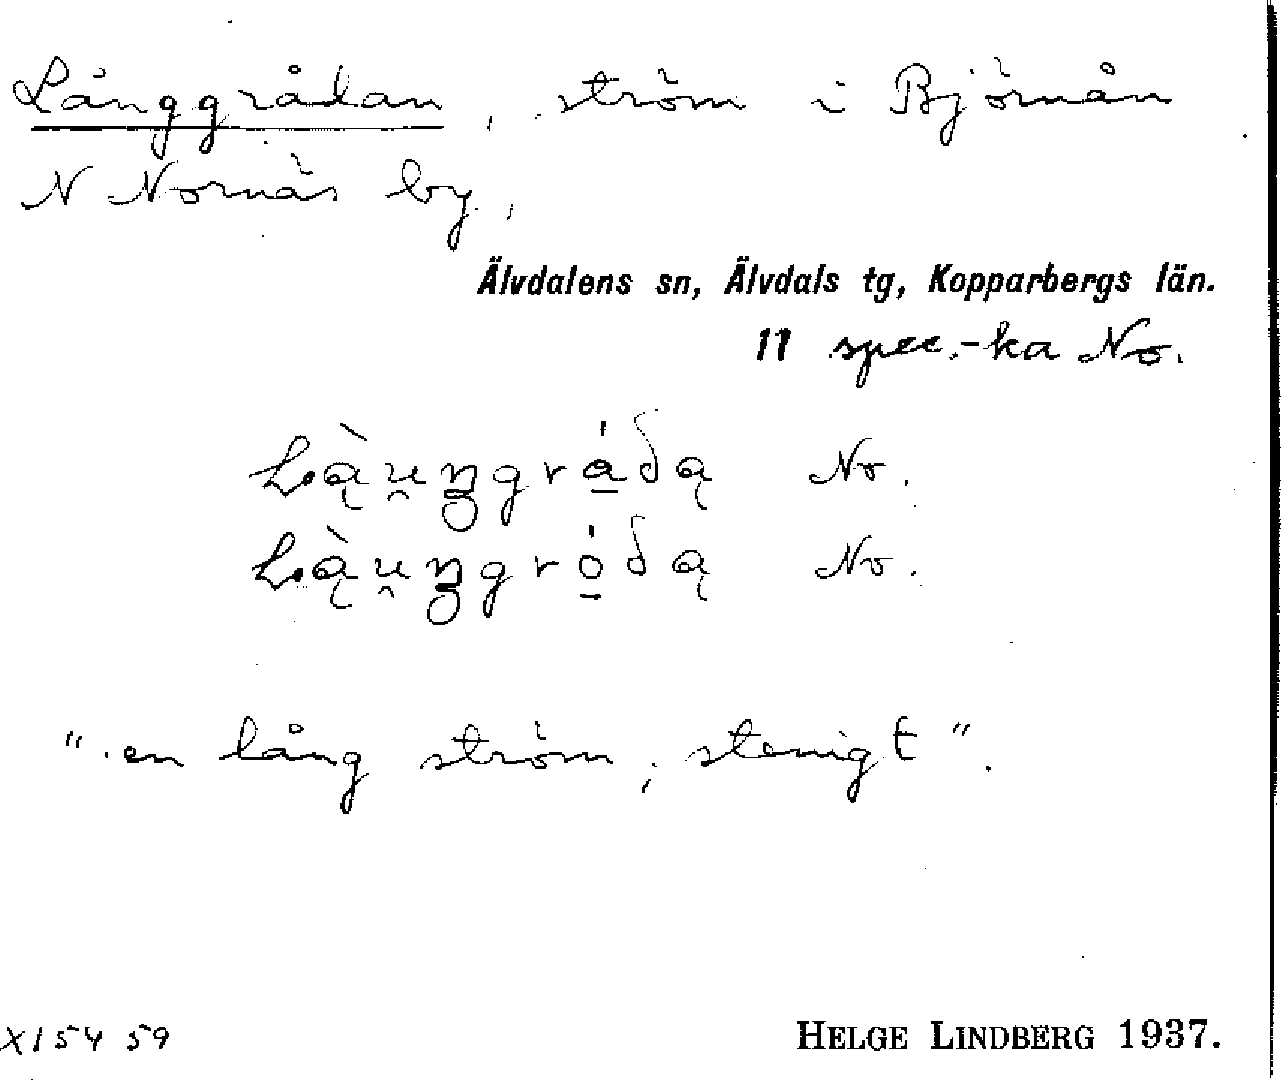 Långgrådan, ström i Björnån
N Nornäs by,
Älvdalens sn, Älvdals tg, Kopparbergs län.
11 spec.-ka No.
No.
No.
"en lång ström, stenigt".
X154 59
HELGE LINDBERG 1937.